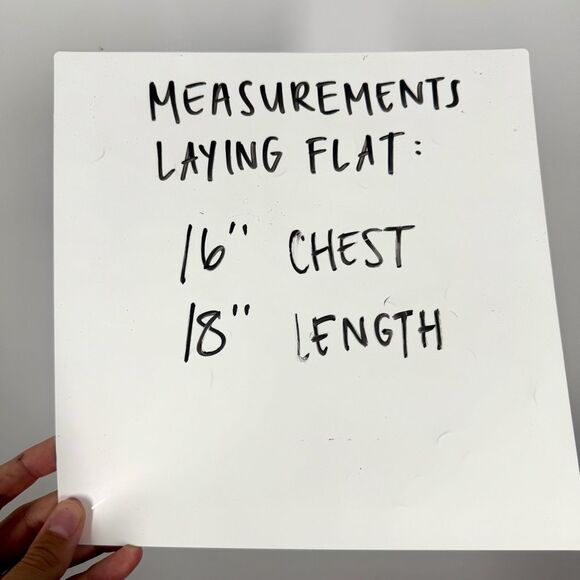 MEASUREMENTS
LAYING FLAT:
16" CHEST
18" LENGTH